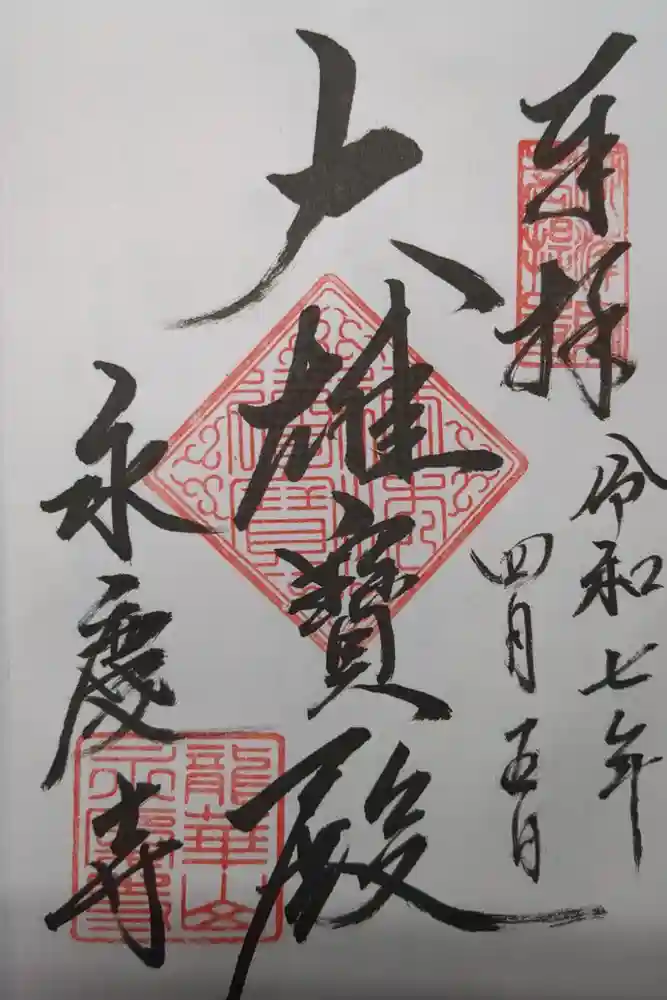 奉拝
令和七年
四月五日
大雄寳殿
永慶寺
龍華山
永慶寺